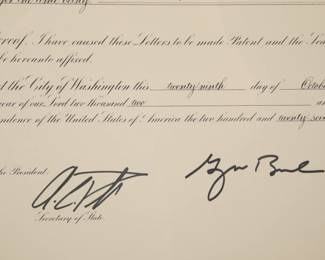 for the time being
hereof, I have caused these Letters to be made Patent and the Seal
be hereunto affixed.
the City of Washington this twenty-ninth day of October
year of our Lord two thousand two an
pendence of the United States of America the two hundred and twenty-seve
the President:
Secretary of State